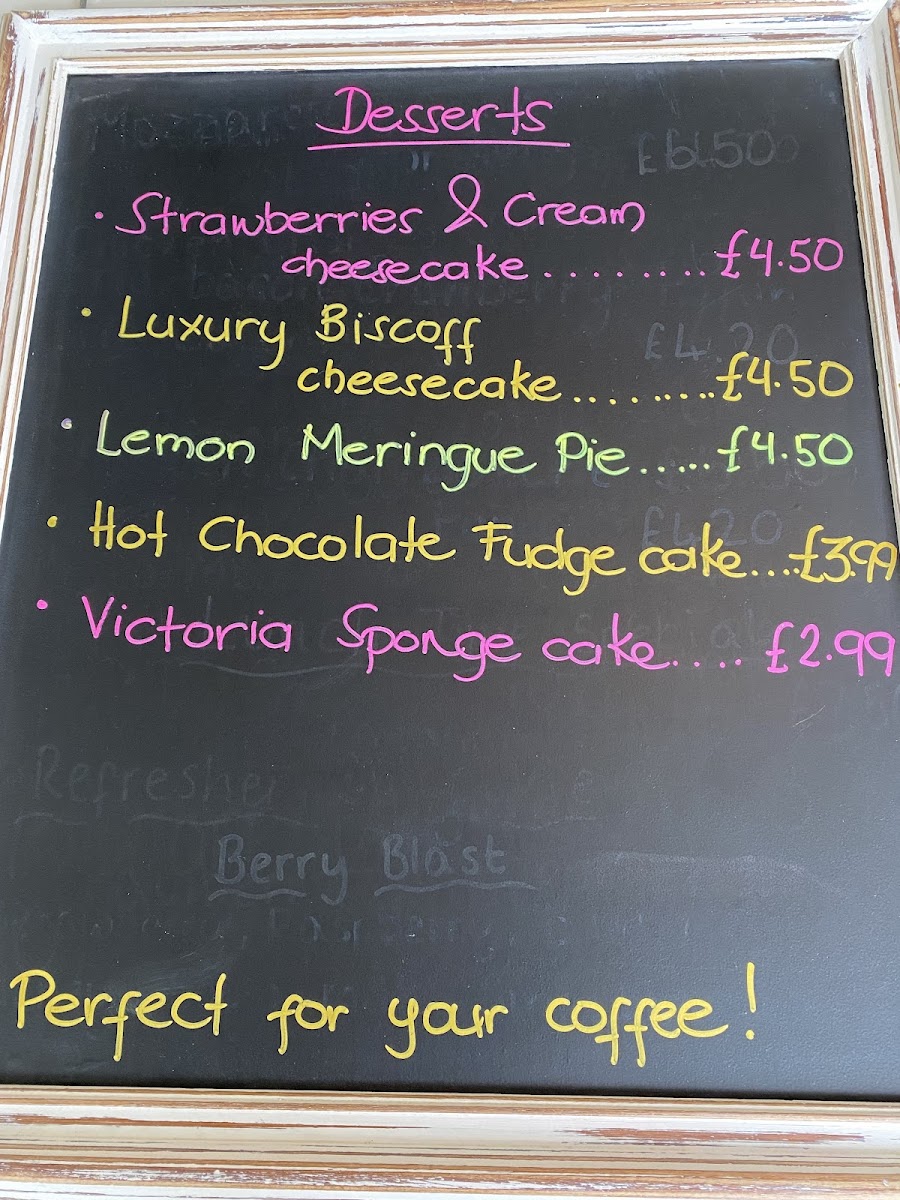 Desserts
• Strawberries & Cream
cheesecake.........£4.50
• Luxury Biscoff
cheesecake.........£4.50
• Lemon Meringue Pie.....£4.50
• Hot Chocolate Fudge cake....£3.99
• Victoria Sponge cake.... £2.99
Berry Blast
Perfect for your coffee!